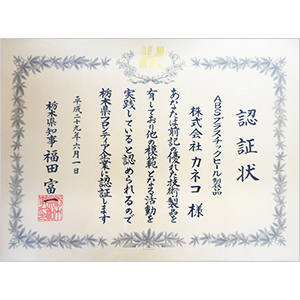 認証状
ABSプラスチックビール製品
株式会社 カネコ 様
あなたは前記の優れた技術製品を
有しており他の模範となる活動を
実践していると認められるので
栃木県フロンティア企業に認証します
平成二十九年六月一日
栃木県知事 福田富一